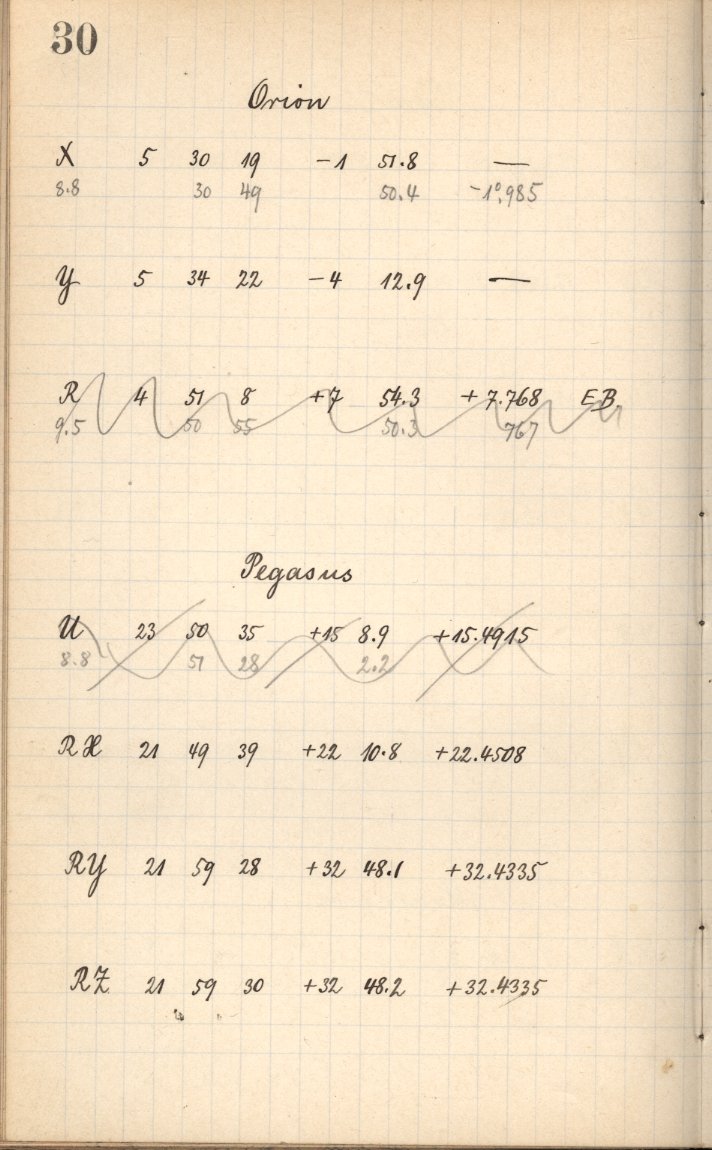 30
Orion
X 5 30 19 -1 51.8 —
8.8 30 49 50.4 -1°.985
Y 5 34 22 -4 12.9 —
R 4 51 8 +7 54.3 +7.768 EB
9.5 50 55 50.3 767
Pegasus
U 23 50 35 +15 8.9 +15.4915
8.8 51 28 2.2
RX 21 49 39 +22 10.8 +22.4508
RY 21 59 28 +32 48.1 +32.4335
RZ 21 59 30 +32 48.2 +32.4335